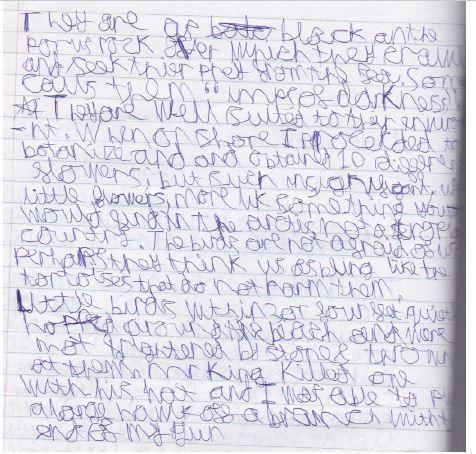 They are as black as the
porus rock over which they crawl
and seek thier prey from the sea, Som
calls them "imps of darkness"
They are well suited to their enviro
-nt. When on shore I proceeded to
botanize and and obtand 10 differen
flowers; but such
little flowers, more lik something you
would find in the arctic not a
country. The birds are not afraid of us
perhaps they think us as being like the
tortoises that do not harm them.
Little birds within 3 or four feet quiet
hopped around the beach and were
not frightened by stones thrown
at them. Mr King killed one
with his hat and I was able to p
a large hawk of a branch with
end of my gun